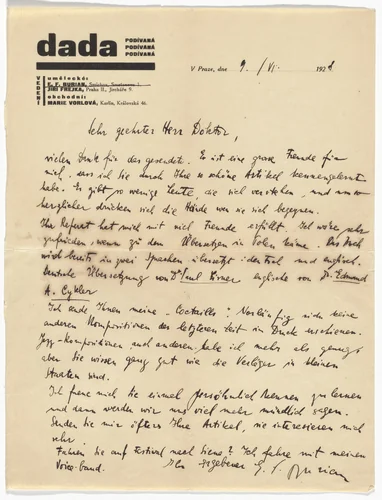 dada
PODÍVANÁ
PODÍVANÁ
PODÍVANÁ
VEDENÍ
umělecké:
E. F. BURIAN,
JIŘÍ FREJKA, Praha II., Ječná
obchodní:
MARIE VORLOVÁ, Karlín, Královská 46.
V Praze, dne 9. /VI. 192
Sehr geehrter Herr Doktor,
vielen Dank für das gesendete. Es ist eine grosse Freude für
mich, dass ich Sie durch Ihre so schöne Artikel kennengelernt
habe. Es gibt so wenige Leute, die sich verstehen, und umso
herzlicher drücken sich die Hände wen sie sich begegnen.
Ihr Referat hat mich mit viel Freude erfüllt. Ich wäre sehr
zufrieden, wenn zu dem Übersetzen in Polen käme. Das Buch
wird bereits in zwei Sprachen übersetzt: deutsch und englisch.
Deutsche Übersetzung von Dr Paul Eisner englische von Dr. Edmund
A. Cykler
Ich sende Ihnen meine "Coctails". Vorläufig sind keine
anderen Kompositionen der letzteren Zeit in Druck erschienen.
Jazz-Kompositionen und anderen habe ich mehr als genug
aber Sie wissen ganz gut wie die Verleger in kleinen
Staaten sind.
Ich freue mich Sie einmal persöhnlich kennen zu lernen
und dann werden wir uns viel mehr mündlich sagen.
Senden Sie mir öfters Ihre Artikel, sie interesieren mich
sehr.
Fahren Sie auf Festival nach Siena? Ich fahre mit meinen
Voice-band.
Ihr ergebener E. F. Burian